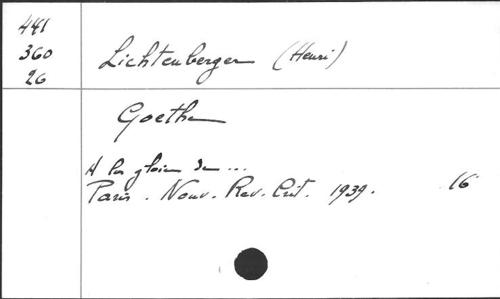 441
360
26
Lichtenberger (Henri)
Goethe
A la gloire de ...
Paris. Nouv. Rev. Crit. 1939. 16